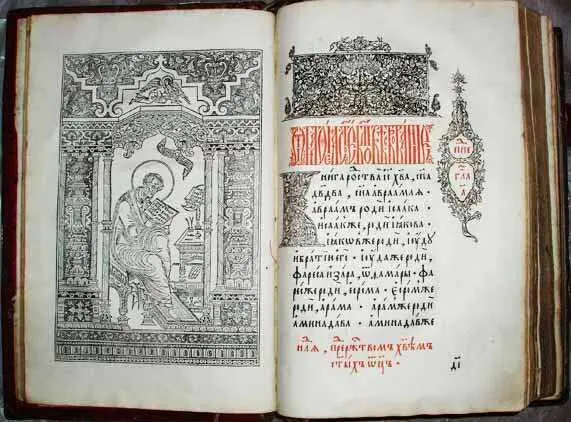 Книга роства і҃с х҃ва, сн҃а
дв҃два, сн҃а авраамля
авраамъ роди исаака
исаакже, роди іакова
іаковже роди, іꙋдꙋ
ибратиіегѡ. іꙋдаже роди,
фареса изара, ѿ ѳамары. фа
ресже роди, есрома. есромже
роди, арама. арамже роди
аминадава. аминадавже
ст҃ыхъ ѻц҃ъ
д҃і